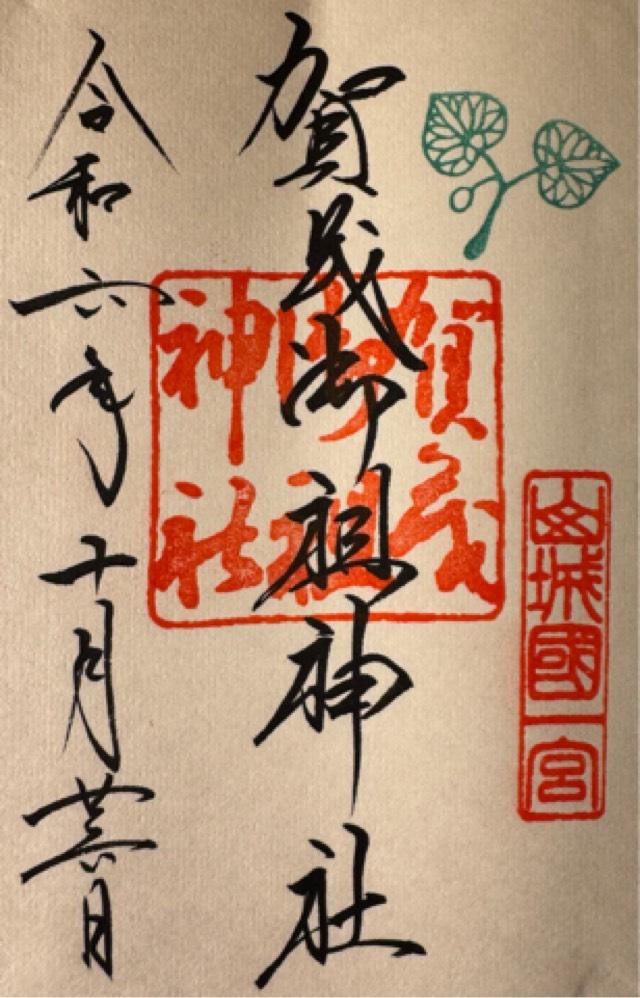 山城國一宮
賀茂御祖神社
賀茂
御祖
神社
令和六年十月廿六日